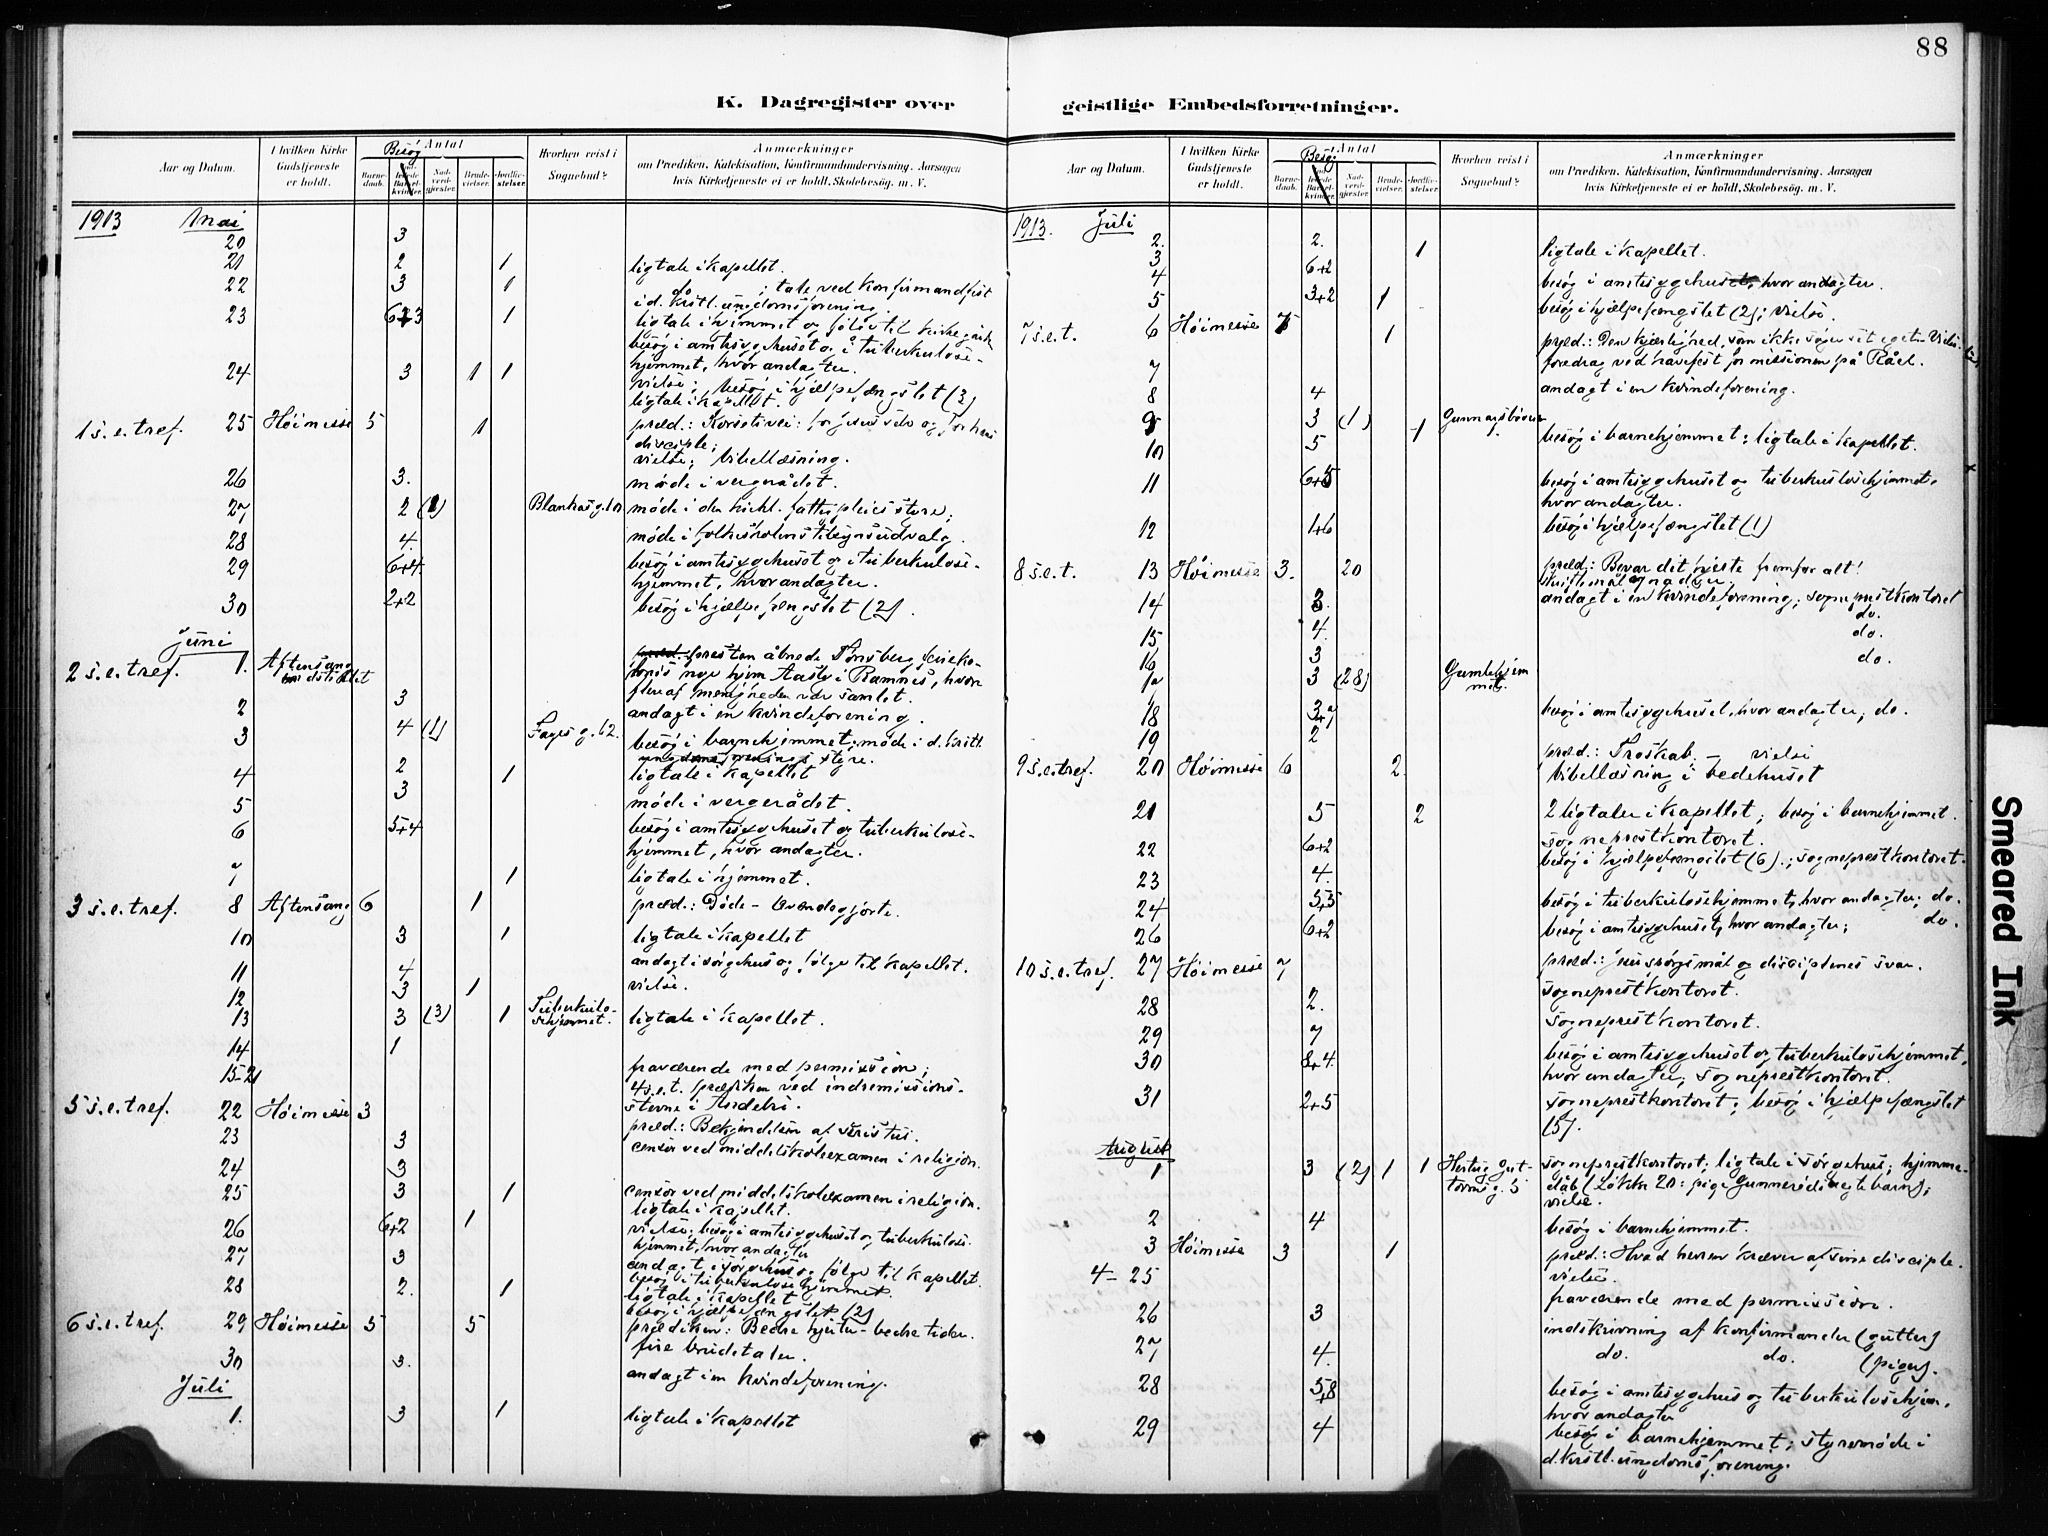 88
K. Dagregister over
geistlige Embedsforretninger.
Aar og Datum.
I hvilken Kirke Gudstjeneste er holdt.
Besøg
Antal
Barnedaab.
Nadverdgjester.
Brudevielser.
Jordfæstelser.
Hvorhen reist i Sognebud?
Anmærkninger
om Prædiken, Katekisation, Konfirmandundervisning. Aarsagen
hvis Kirketjeneste ei er holdt. Skolebesøg. m. V.
1913 Mai
20 3
21 2 1 ligtale i kapellet.
22 3 1 do ; tale ved konfirmandfest
i d. kristl. ungdomsforening.
23 6+3 1 ligtale i hjemmet og følge til kirkegård
besøg i amtssygehuset og i tuberkulose-
hjemmet, hvor andagter.
24 3 1 1 vielse; besøg i hjælpefængslet (3)
ligtale i kapellet.
1 s.e.tref. 25 Høimesse 5 1 præd.: Korsets vei: for Jesus selv og for hans
disciple;
vielse; bibellæsning.
26 3. møde i vergerådet.
27 2 (1) møde i den kirkl. fattigpleies styre;
28 4. møde i folkeskolens tilsynsudvalg.
29 6+4. besøg i amtssygehuset og i tuberkulose-
hjemmet, hvor andagter.
30 2+2 besøg i hjælpefængslet (2).
Juni
2 s.e.tref. 1. Aftensang
presten åbnede Tønsberg ferieko-
lonis nye hjem Aasly i Ramnes, hvor
flere af menigheden var samlet.
2 3 andagt i en kvindeforening.
3 4 (1) besøg i barnehjemmet; møde i d. kristl.
ungdomsforenings styre.
4 2 1 ligtale i kapellet
5 3 møde i vergerådet.
6 5+4 besøg i amtssygehuset og tuberkulose-
hjemmet, hvor andagter.
7 1 ligtale i hjemmet.
3 s.e.tref. 8 Aftensang 6 1 præd.: Døde - levendegjorte.
10 3 1 ligtale i kapellet
11 4 andagt i sørgehus og følge til kapellet.
12 3 1 vielse.
13 3 (3) 1 Tuberkulo-
sehjemmet. ligtale i kapellet.
14 1
15-21 fraværende med permission;
4 s.e.t. prædiken ved indremissions-
stevne i Andebu.
5 s.e.tref. 22 Høimesse 3 præd.: Bekjendelsen af Kristus.
23 3 censor ved middelskoleexamen i religion.
24 3
25 3 1 censor ved middelskolexamen i religion.
ligtale i kapellet.
26 6+2 1 vielse; besøg i amtssygehuset og tuberkulose-
hjemmet, hvor andagter
27 3 andagt i sørgehus og følge til kapellet.
besøg i tuberkulosehjemmet.
28 2. 1 ligtale i kapellet
besøg i hjælpefængslet (2)
6 s.e.tref. 29 Høimesse 5 5 prædiken: Bedre hjerter - bedre tider.
fire brudetaler.
30 3. andagt i en kvindeforening.
Juli
1. 3 1 ligtale i kapellet
Aar og Datum.
I hvilken Kirke Gudstjeneste er holdt.
Besøg
Antal
Barnedaab.
Nadverdgjester.
Brudevielser.
Jordfæstelser.
Hvorhen reist i Sognebud?
Anmærkninger
om Prædiken, Katekisation, Konfirmandundervisning. Aarsagen
hvis Kirketjeneste ei er holdt. Skolebesøg. m. V.
1913. Juli
2. 2. 1 ligtale i kapellet.
3
4 6+2 besøg i amtssygehuset, hvor andagter.
5 3+2 1 besøg i hjælpefængslet (2); vielse.
7 s.e.t. 6 Høimesse 1 præd.: Den kjærlighed, som ikke søger sit eget.
foredrag ved havefest for missionen på Råel.
7
8 4 andagt i en kvindeforening.
9 3 (1)
10 5 1 besøg i barnehjemmet; ligtale i kapellet.
11 6+5 besøg i amtssygehuset og tuberkulosehjemmet,
hvor andagter.
12 1+6 besøg i hjælpefængslet (1)
8 s.e.t. 13 Høimesse 3. 20 præd.: Bevar dit hjerte fremfor alt!
14 3. andagt i en kvindeforening; sogneprestkontoret
15 4. do.
16 3 do.
17 3 (28) Gamlehjem
met. do.
18 3+7 besøg i amtssygehuset, hvor andagter; do.
19 2
9 s.e.tref. 20 Høimesse 6 2. præd.: Troskab. - vielse
bibellæsning i bedehuset
21 5 2 2 ligtaler i kapellet; besøg i barnehjemmet.
sogneprestkontoret.
22 6+2 besøg i hjælpefængslet (6).; sogneprestkontoret.
23 4.
24 5+5 besøg i tuberkulosehjemmet, hvor andagter; do.
26 6+2 besøg i amtssygehuset, hvor andagter; do.
10 s.e.tref. 27 Høimesse 7 præd.: Jesu spørgsmål og disciplenes svar.
28 2. sogneprestkontoret.
29 7 sogneprestkontoret.
30 8+4. besøg i amtssygehuset og tuberkulosehjemmet,
hvor andagter; sogneprestkontoret.
31 2+5 sogneprestkontoret; besøg i hjælpefængslet
(5).
August
1 3 (2) 1 1 Hertug Gut-
tormsg. 5 sogneprestkontoret; ligtale i sørgehus; hjemme-
dåb
vielse.
2 4 besøg i barnehjemmet.
3 Høimesse 3 1 præd.: Hvad herren kræver af sine disciple.
vielse.
4-25 fraværende med permission.
26 3 indskrivning af konfirmander (gutter)
27 4. do. do. (piger).
28 5+8 besøg i amtssygehus og tuberkulosehjem,
hvor andagter
29 4 besøg i barnehjemmet; styremøde i
d. kristl. ungdomsforening.
Smeared Ink